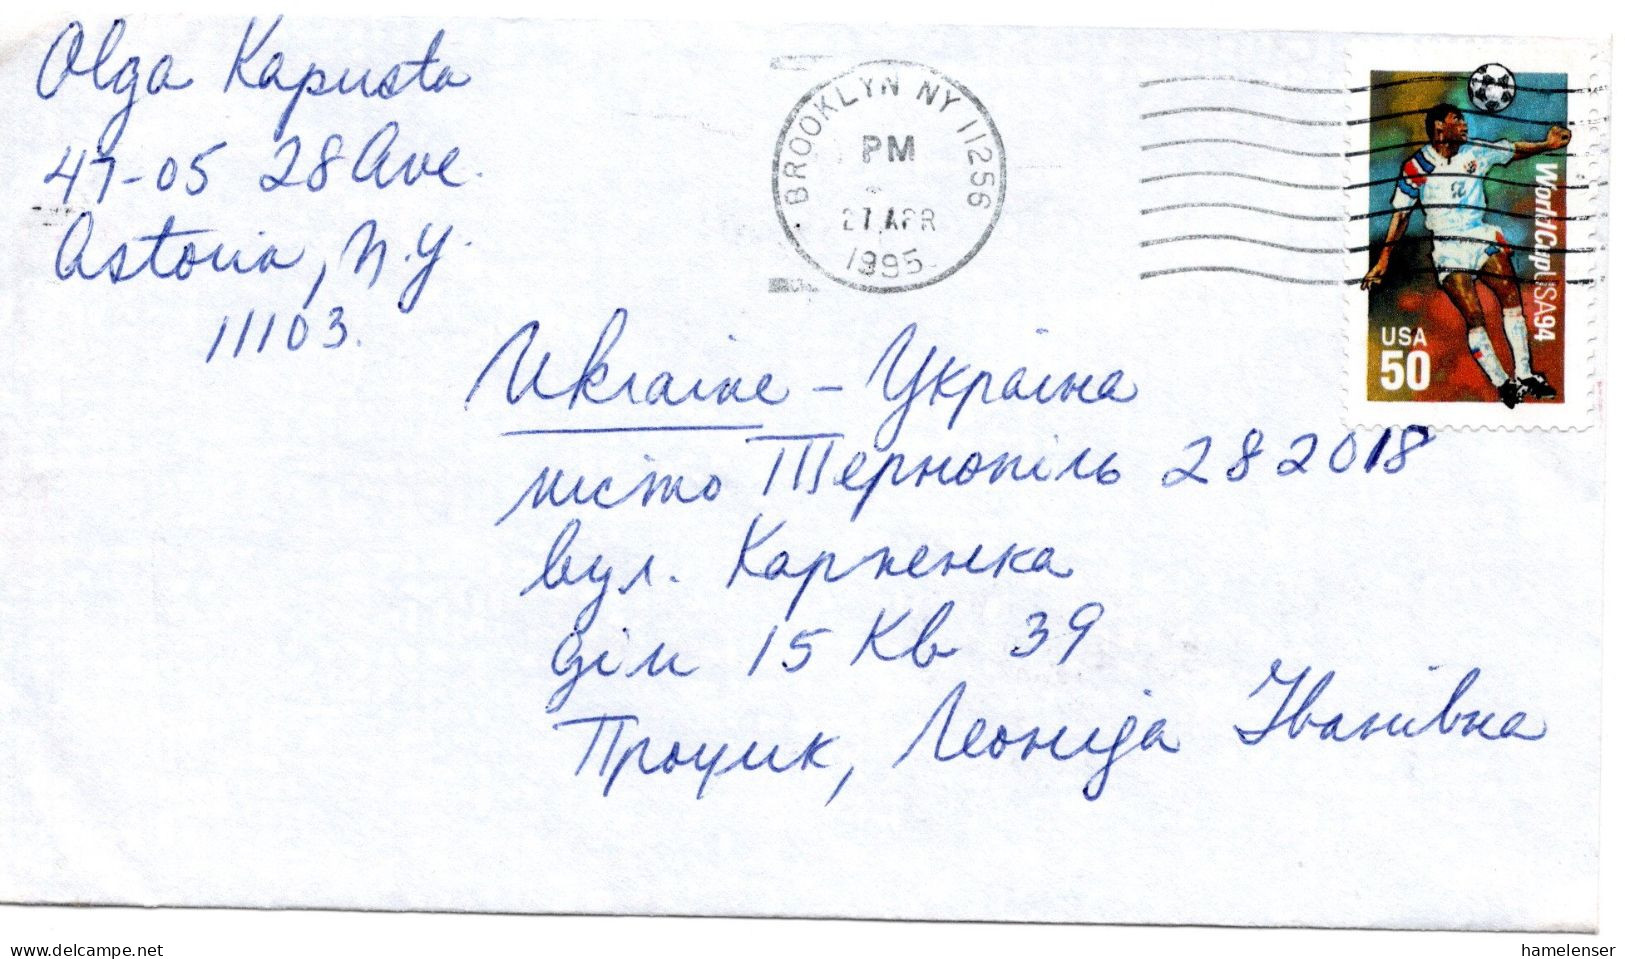 Olga Kapusta
47-05 28 Ave.
Astoria, N.Y.
11103.
BROOKLYN NY 11256
PM
27 APR
1995
WorldCupUSA94
USA
50
Ukraine - Україна
місто Тернопіль 282018
вул. Карпенка
дім 15 Кв 39
Процик, Леоніда Іванівна
delcampe.net
hamelenser